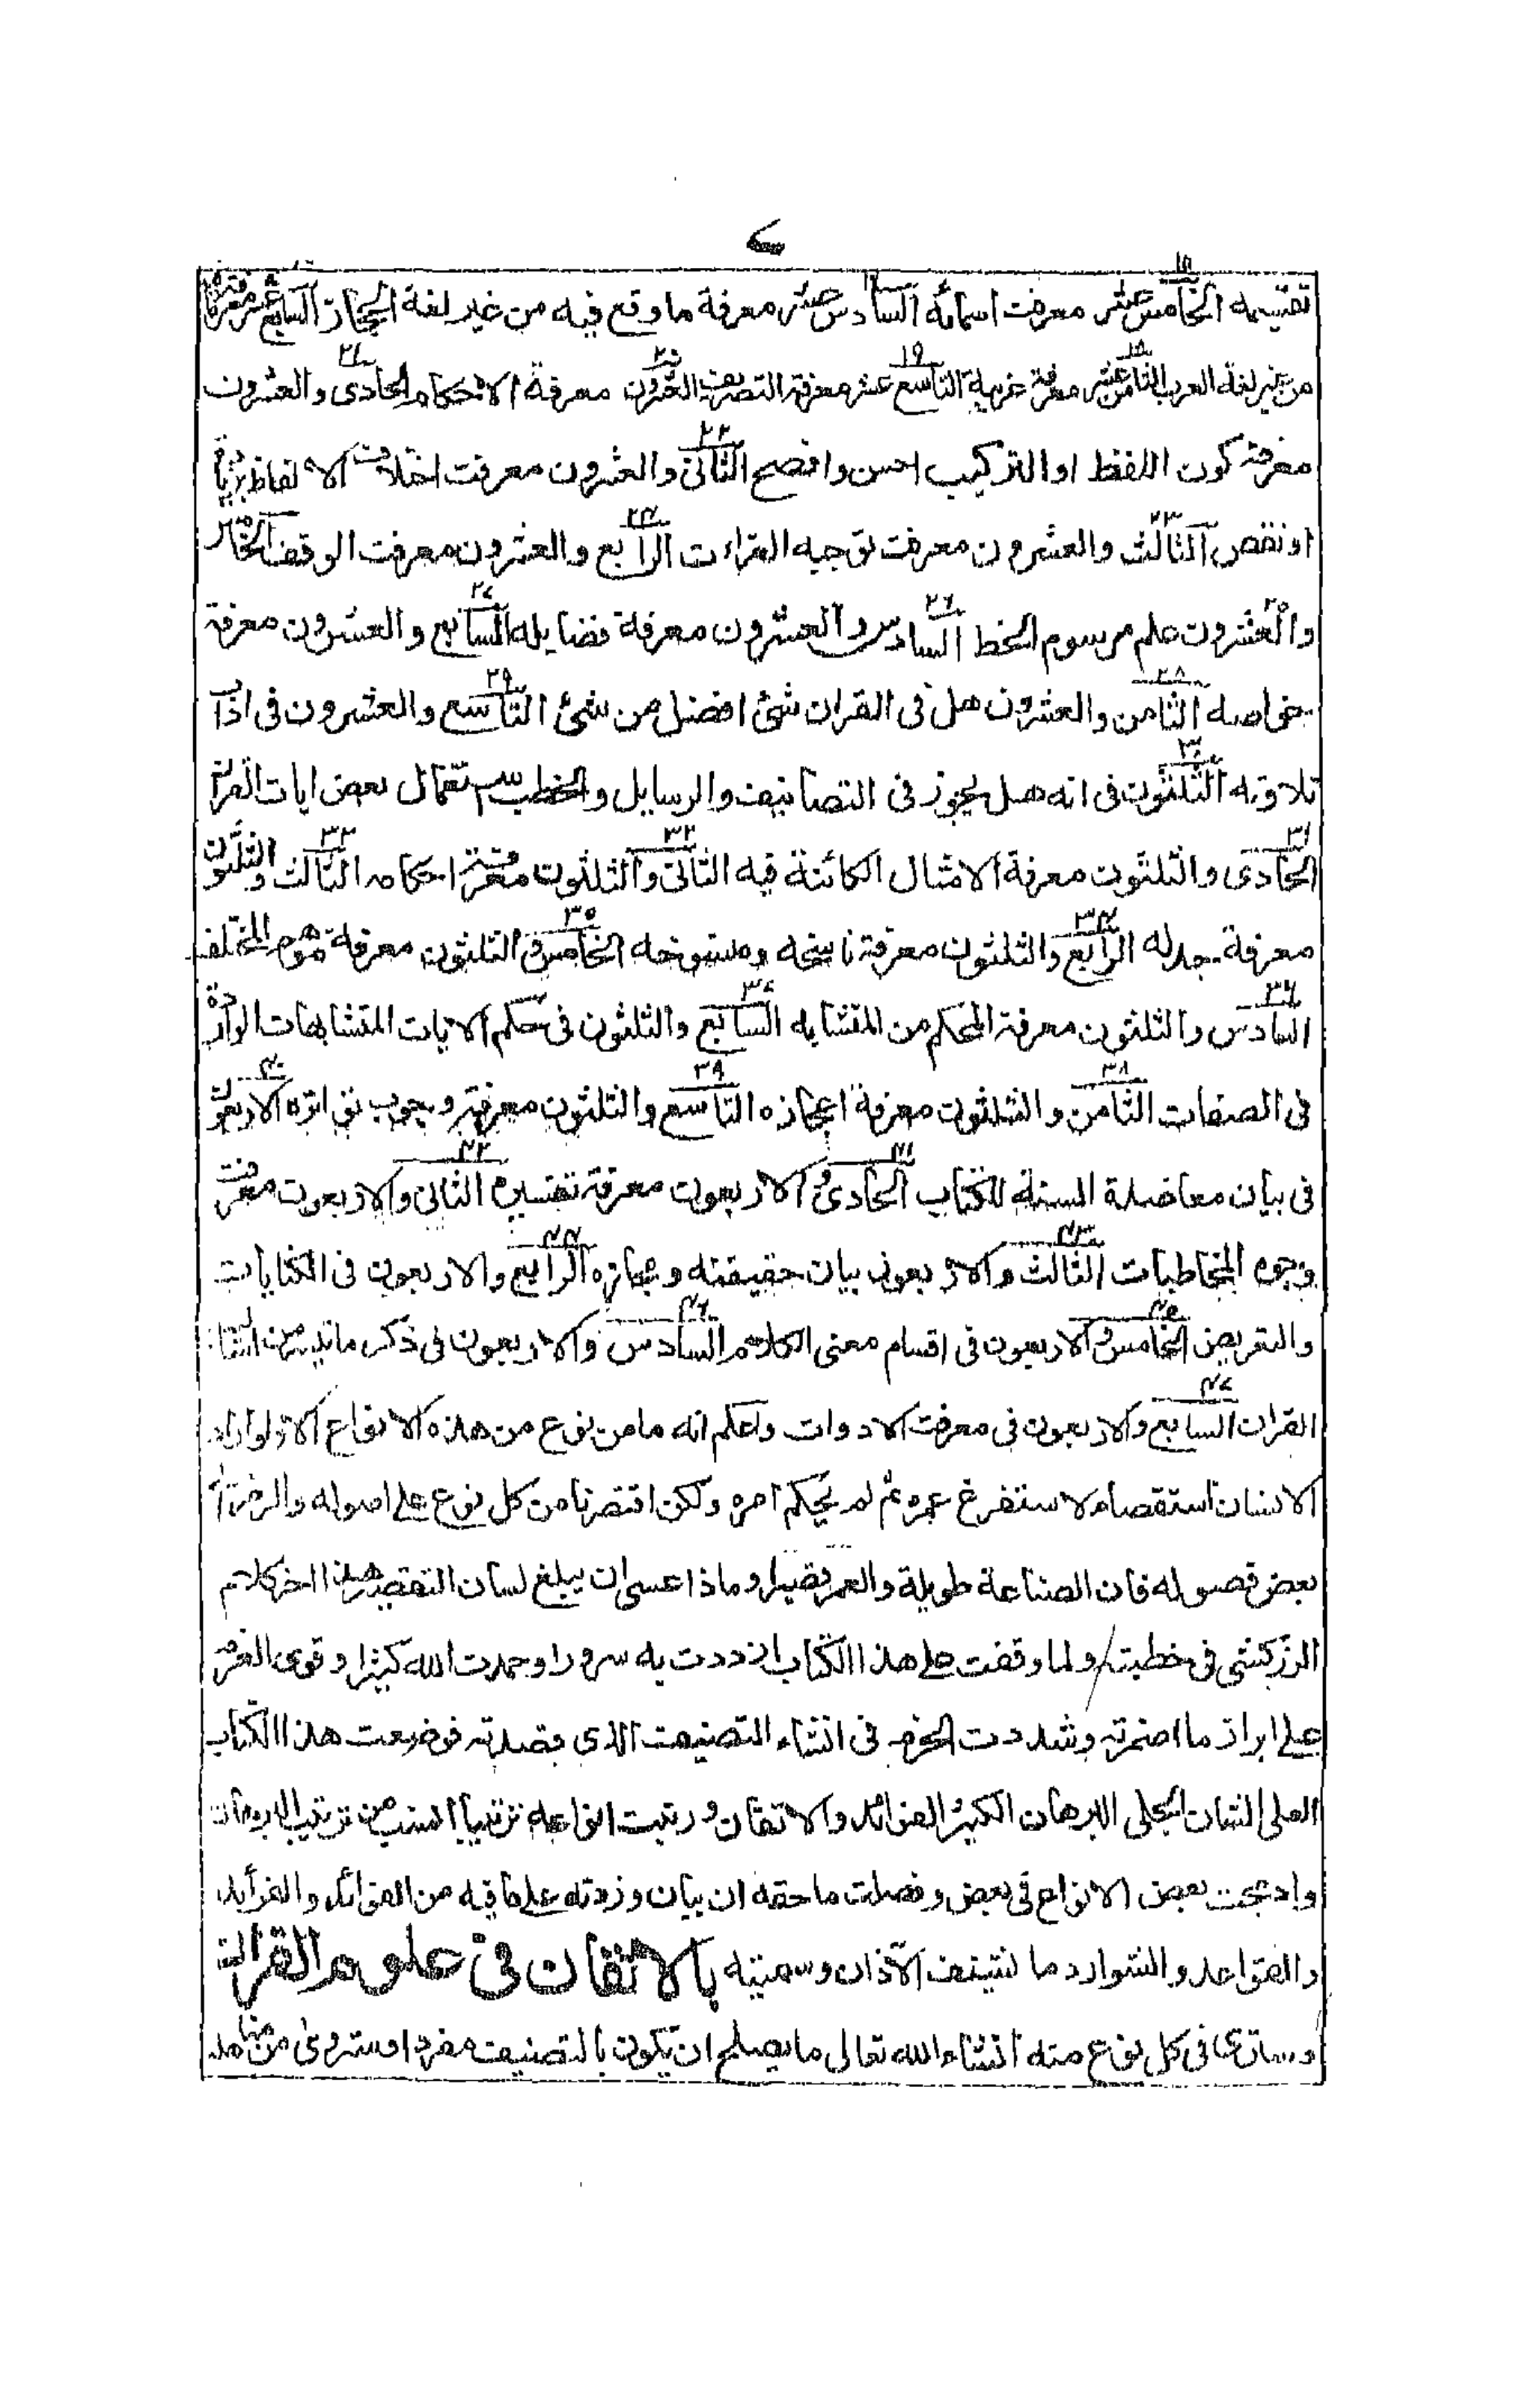 تقسيمه الخامس عشر معرفت اسمائه السادس عشر معرفة ما وقع فيه من غير لغة الحجاز السابع عشر معرفة ما فيه
من غير لغة العرب الثامن عشر معرفة غريبه التاسع عشر معرفة التصريف العشرون معرفة الاحكام الحادى والعشرون
معرفة كون اللفظ او التركيب احسن وافصح الثانى والعشرون معرفت اختلاف الالفاظ بزيادة
او نقص الثالث والعشرون معرفت توجيه القراءت الرابع والعشرون معرفت الوقف الخامس
والعشرون علم مرسوم الخط السادس والعشرون معرفة فضايله السابع والعشرون معرفة
خواصه الثامن والعشرون هل فى القران شئ افضل من شئ التاسع والعشرون فى اداب
تلاوته الثلثون فى انه هل يجوز فى التصانيف والرسايل والخطب استعمال بعض ايات القران
الحادى والثلثون معرفة الامثال الكائنة فيه الثانى والثلثون معرفة احكامه الثالث والثلثون
معرفة جدله الرابع والثلثون معرفة ناسخه ومنسوخه الخامس والثلثون معرفة موهم المختلف
السادس والثلثون معرفة المحكم من المتشابه السابع والثلثون فى حكم الايات المتشابهات الواردة
فى الصفات الثامن والثلثون معرفة اعجازه التاسع والثلثون معرفة وجوب تواتره الاربعون
فى بيان معاضدة السنة للكتاب الحادى والاربعون معرفة تفسيره الثانى والاربعون معرفت
وجوه المخاطبات الثالث والاربعون بيان حقيقته ومجازه الرابع والاربعون فى الكنايات
والتعريض الخامس والاربعون فى اقسام معنى الكلام السادس والاربعون فى ذكر ما تيسر من اساليب
القران السابع والاربعون فى معرفت الادوات واعلم انه ما من نوع من هذه الانواع الا ولو اراد
الانسان استقصاءه لاستفرغ عمره ثم لم يحكم امره ولكن اقتصرنا من كل نوع على اصوله والرمز الى
بعض فصوله فان الصناعة طويلة والعمر قصير وماذا عسى ان يبلغ لسان التقصير هذا اخر كلام
الزركشى فى خطبته ولما وقفت على هذا الكتاب ازددت به سرورا وحمدت الله كثيرا وقوى العزم
على ابراز ما اضمرته وشددت الحزم فى انشاء التصنيف الذى قصدته فوضعت هذا الكتاب
العلى الشان الجلى البرهان الكثير الفوائد والاتقان ورتبت انواعه ترتيبا انسب من ترتيب البرهان
وادمجت بعض الانواع فى بعض وفصلت ما حقه ان يبان وزدته على ما فيه من الفوائد والفرائد
والقواعد والشوارد ما يشنف الآذان وسميته بالاتقان فى علوم القران
وسترى فى كل نوع منه انشاء الله تعالى ما يصلح ان يكون بالتصنيف مفردا وستروى من مناهله